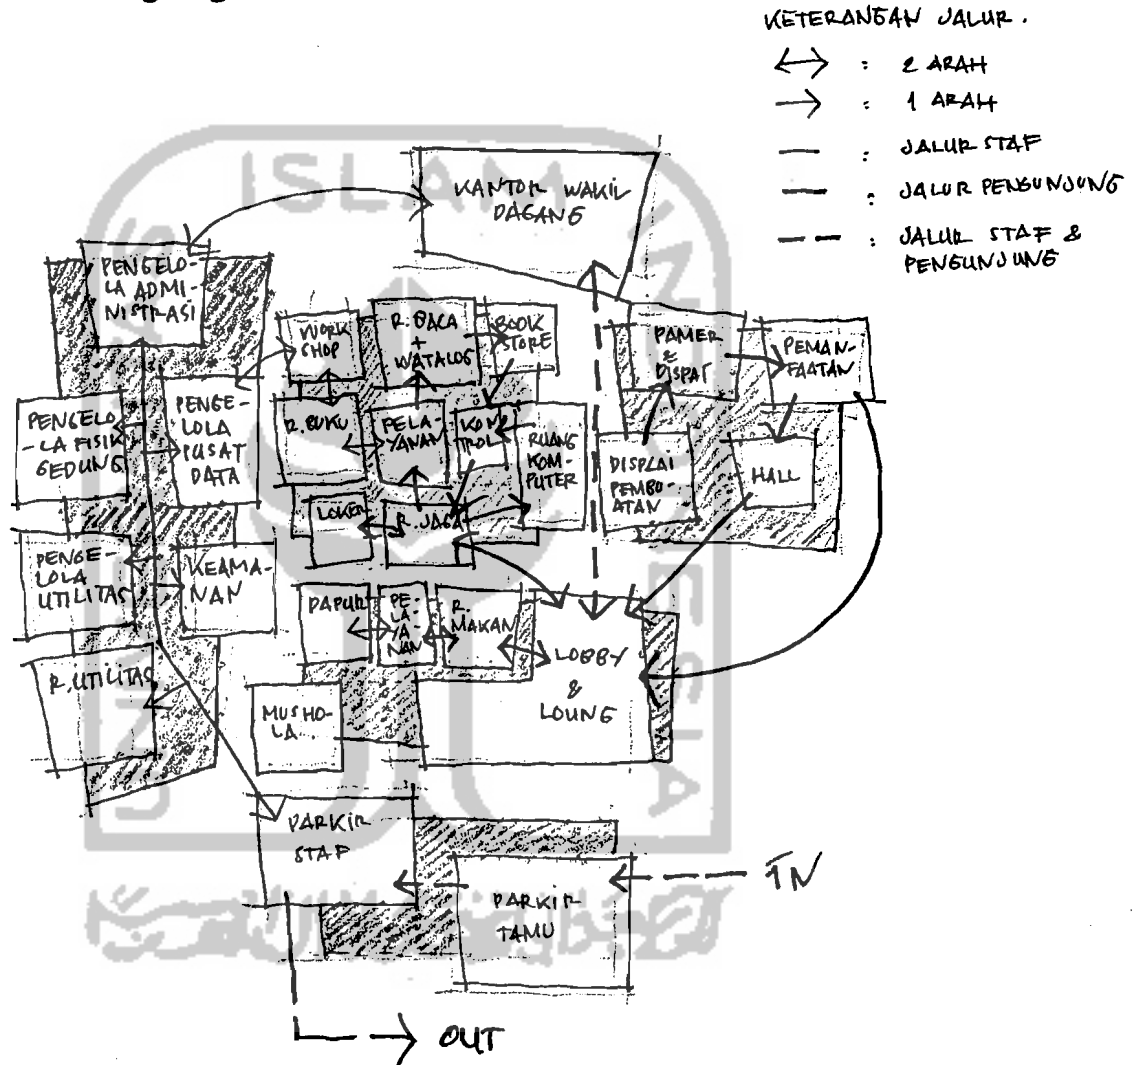 KETERANGAN JALUR.
: 2 ARAH
: 1 ARAH
: JALUR STAF
: JALUR PENGUNJUNG
: JALUR STAF &
PENGUNJUNG
ISLAM
KANTOR WAKIL
DAGANG
PENGELO-
LA ADMI-
NISTRASI
WORK
SHOP
R. BACA
+
KATALOG
BOOK
STORE
PAMER
&
DISPAL
PEMAN-
FAATAN
PENGELO-
-LA FISIK
GEDUNG
PENGE-
LOLA
PUSAT
DATA
R. BUKU
PELA-
YANAN
KON
TROL
RUANG
KOM-
PUTER
DISPLAI
PEMBU-
ATAN
HALL
LOKER
R. JAGA
PENGE-
LOLA
UTILITAS
KEAMA-
NAN
DAPUR
PE-
LA-
YA-
NAN
R.
MAKAN
LOBBY
&
LOUNG
R. UTILITAS
MUSHO-
LA
PARKIR
STAF
IN
PARKIR
TAMU
OUT